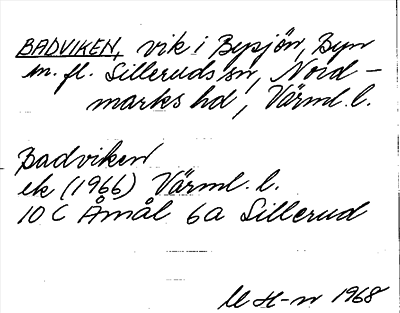 BADVIKEN, vik i Bysjön, Byn
m. fl. Silleruds sn, Nord-
marks hd, Värml. l.
Badviken
ek (1966) Värml. l.
10 C Åmål 6a Sillerud
M H-n 1968